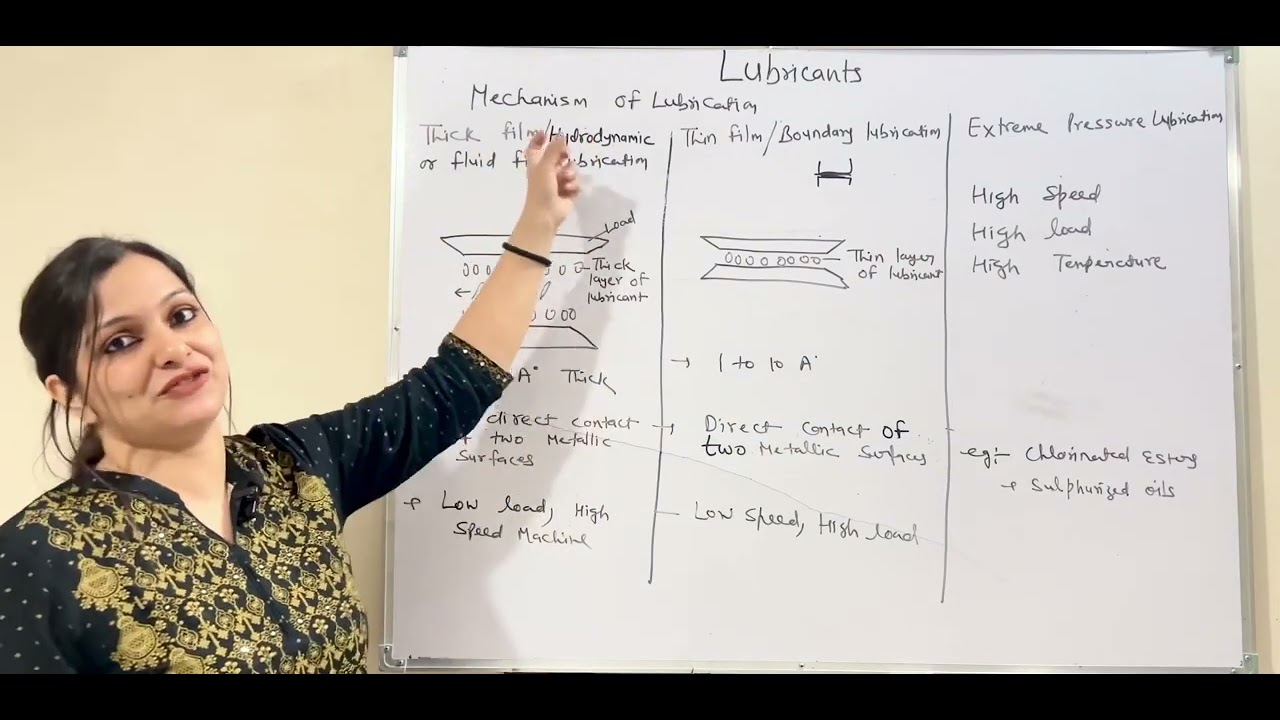 Lubricants
Mechanism of Lubrication
Thick film/Hydrodynamic
or fluid fi lubrication
Load
Thick
layer of
lubricant
A° Thick
direct contact
two Metallic
Surfaces
Low load, High
Speed Machine
Thin film/Boundary lubrication
Thin layer
of lubricant
→ 1 to 10 A°
→ Direct contact of
two Metallic Surfaces
- Low Speed, High load
Extreme Pressure Lubrication
High Speed
High load
High Temperature
eg:- Chlorinated Esters
→ Sulphurized oils